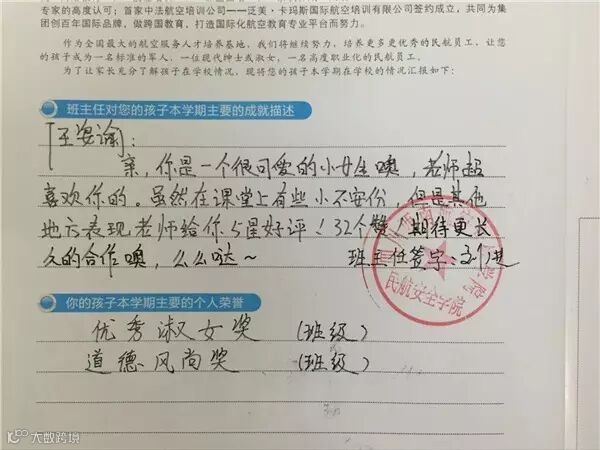 专家的高度认可；首家中法航空培训公司——泛美·卡玛斯国际航空培训有限公司签约成立，共同为集
团创百年国际品牌，做跨国教育，打造国际化航空教育专业平台而努力。
作为全国最大的航空服务人才培养基地，我们将继续努力，培养更多更优秀的民航员工，让您
的孩子成为一名标准的军人，一位现代绅士或淑女，一名高度职业化的民航员工。
为了让家长充分了解孩子在学校情况，现将您的孩子本学期在学校的情况汇报如下：
班主任对您的孩子本学期主要的成就描述
[王姿谕]：
亲，你是一个很可爱的小女生噢，老师超
喜欢你的。虽然在课堂上有些小不安份，但是其他
地方表现老师给你5星好评！32个赞！期待更长
久的合作噢，么么哒～ 班主任签字：
民航安全学院
你的孩子本学期主要的个人荣誉
优秀淑女奖 （班级）
道德风尚奖 （班级）
大数跨境